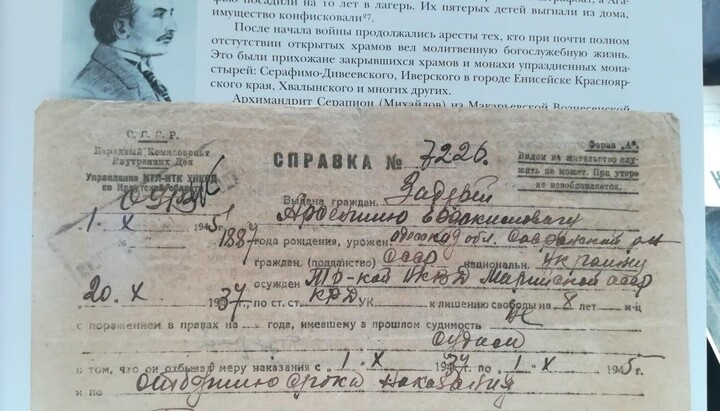 фью посадили на 10 лет в лагерь. Их пятерых детей выгнали из дома,
имущество конфисковали²⁷.
После начала войны продолжались аресты тех, кто при почти полном
отсутствии открытых храмов вел молитвенную богослужебную жизнь.
Это были прихожане закрывшихся храмов и монахи упраздненных мона-
стырей: Серафимо-Дивеевского, Иверского в городе Енисейске Краснояр-
ского края, Хвалынского и многих других.
Архимандрит Серапион (Михайлов) из Макарьевской Вознесенской
С. С. С. Р.
Народный Комиссариат
Внутренних Дел
Управление ИТЛ-ИТК УНКВД
по Иркутской области
СПРАВКА № 7226.
Форма „А".
Видом на жительство слу-
жить не может. При утере
не возобновляется.
Выдана граждан.
1. X 1945 г.
№
1887 года рождения, урожен. обл. р-н
граждан. (подданство) СССР национальн.
осужден НКВД Марийской АССР
20. X 1937 г., по ст. ст. КРД УК к лишению свободы на 8 лет м-ц
с поражением в правах на года, имевшему в прошлом судимость не
судим
в том, что он отбывал меру наказания с 1. X 1937 г. по 1 X 1945 г.
и по отбытию срока наказания